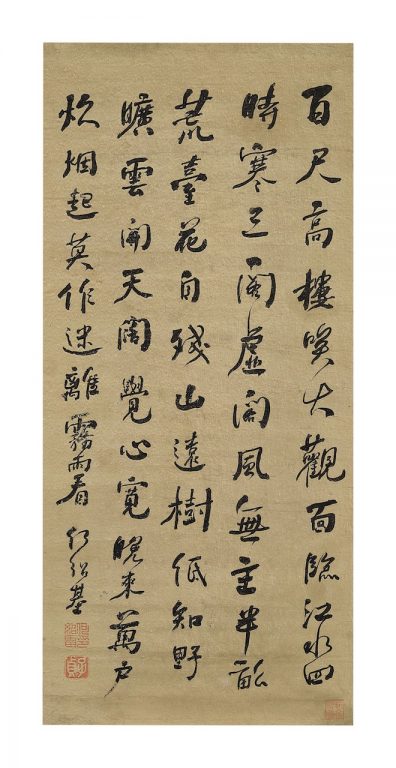 百尺高樓喚大觀面臨江水四
時寒三閣虛開風無主半畝
荒臺花自殘山遠樹低知野
曠雲開天闊覺心寬晚來萬戶
炊烟起莫作迷離霧雨看 何紹基